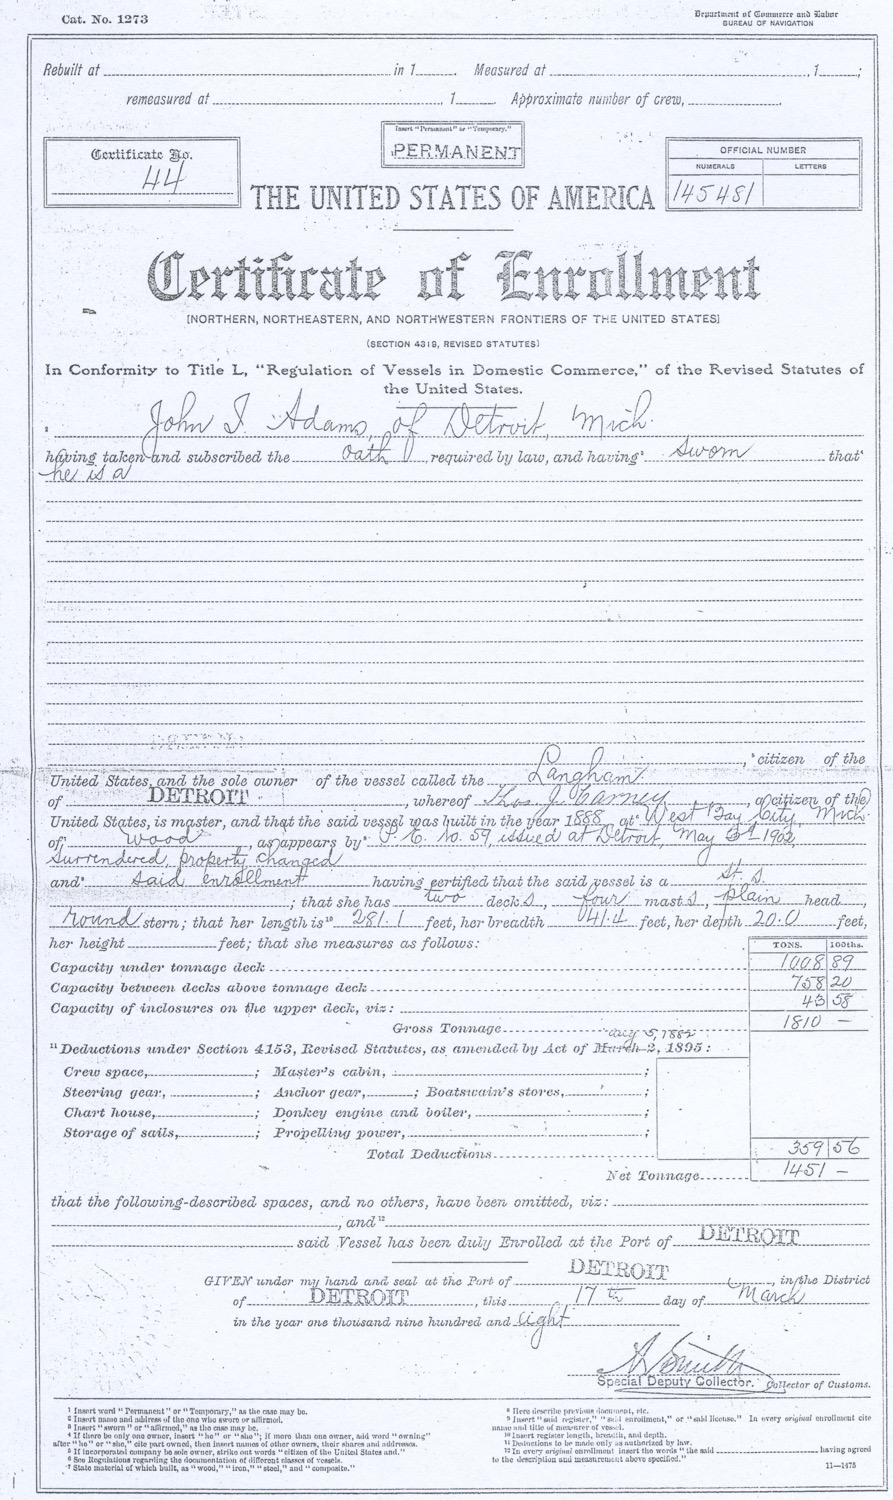 Cat. No. 1273
Department of Commerce and Labor
BUREAU OF NAVIGATION
Rebuilt at in 1 Measured at , 1 ;
remeasured at , 1 . Approximate number of crew, .
Insert "Permanent" or "Temporary."
PERMANENT
Certificate No.
44
OFFICIAL NUMBER
NUMERALS LETTERS
145481
THE UNITED STATES OF AMERICA
Certificate of Enrollment
[NORTHERN, NORTHEASTERN, AND NORTHWESTERN FRONTIERS OF THE UNITED STATES]
(SECTION 4319, REVISED STATUTES)
In Conformity to Title L, "Regulation of Vessels in Domestic Commerce," of the Revised Statutes of
the United States.
John I. Adams, of Detroit, Mich.
having taken and subscribed the oath , required by law, and having³ sworn that⁴
he is a
,⁵ citizen of the
United States, and the sole owner of the vessel called the Langham
of DETROIT , whereof Thos. J. Carney , a citizen of the
United States, is master, and that the said vessel was built in the year 1888, at West Bay City, Mich.
of⁷ wood , as appears by⁸ P. E. No. 59, issued at Detroit, May 3d 1902,
Surrendered, property changed
and⁹ said enrollment having certified that the said vessel is a St. S.
; that she has two decks, four masts, plain head,
round stern; that her length is¹⁰ 281.1 feet, her breadth 41.4 feet, her depth 20.0 feet,
her height feet; that she measures as follows:
TONS. 100ths.
Capacity under tonnage deck 1008 89
Capacity between decks above tonnage deck 758 20
Capacity of inclosures on the upper deck, viz: 43 58
Gross Tonnage 1810 —
Aug 5, 1882
¹¹ Deductions under Section 4153, Revised Statutes, as amended by Act of March 2, 1895:
Crew space, ; Master's cabin, ;
Steering gear, ; Anchor gear, ; Boatswain's stores, ;
Chart house, ; Donkey engine and boiler, ;
Storage of sails, ; Propelling power, ;
Total Deductions 359 56
Net Tonnage 1451 —
that the following-described spaces, and no others, have been omitted, viz:
, and¹²
said Vessel has been duly Enrolled at the Port of DETROIT
GIVEN under my hand and seal at the Port of DETROIT , in the District
of DETROIT , this 17th day of March
in the year one thousand nine hundred and eight
Smith
Special Deputy Collector. Collector of Customs.
¹ Insert word "Permanent" or "Temporary," as the case may be.
² Insert name and address of the one who swore or affirmed.
³ Insert "sworn" or "affirmed," as the case may be.
⁴ If there be only one owner, insert "he" or "she"; if more than one owner, add word "owning"
after "he" or "she," cite part owned, then insert names of other owners, their shares and addresses.
⁵ If incorporated company be sole owner, strike out words "citizen of the United States and."
⁶ See Regulations regarding the documentation of different classes of vessels.
⁷ State material of which built, as "wood," "iron," "steel," and "composite."
⁸ Here describe previous document, etc.
⁹ Insert "said register," "said enrollment," or "said license." In every original enrollment cite
name and title of measurer of vessel.
¹⁰ Insert register length, breadth, and depth.
¹¹ Deductions to be made only as authorized by law.
¹² In every original enrollment insert the words "the said having agreed
to the description and measurement above specified."
11—1475